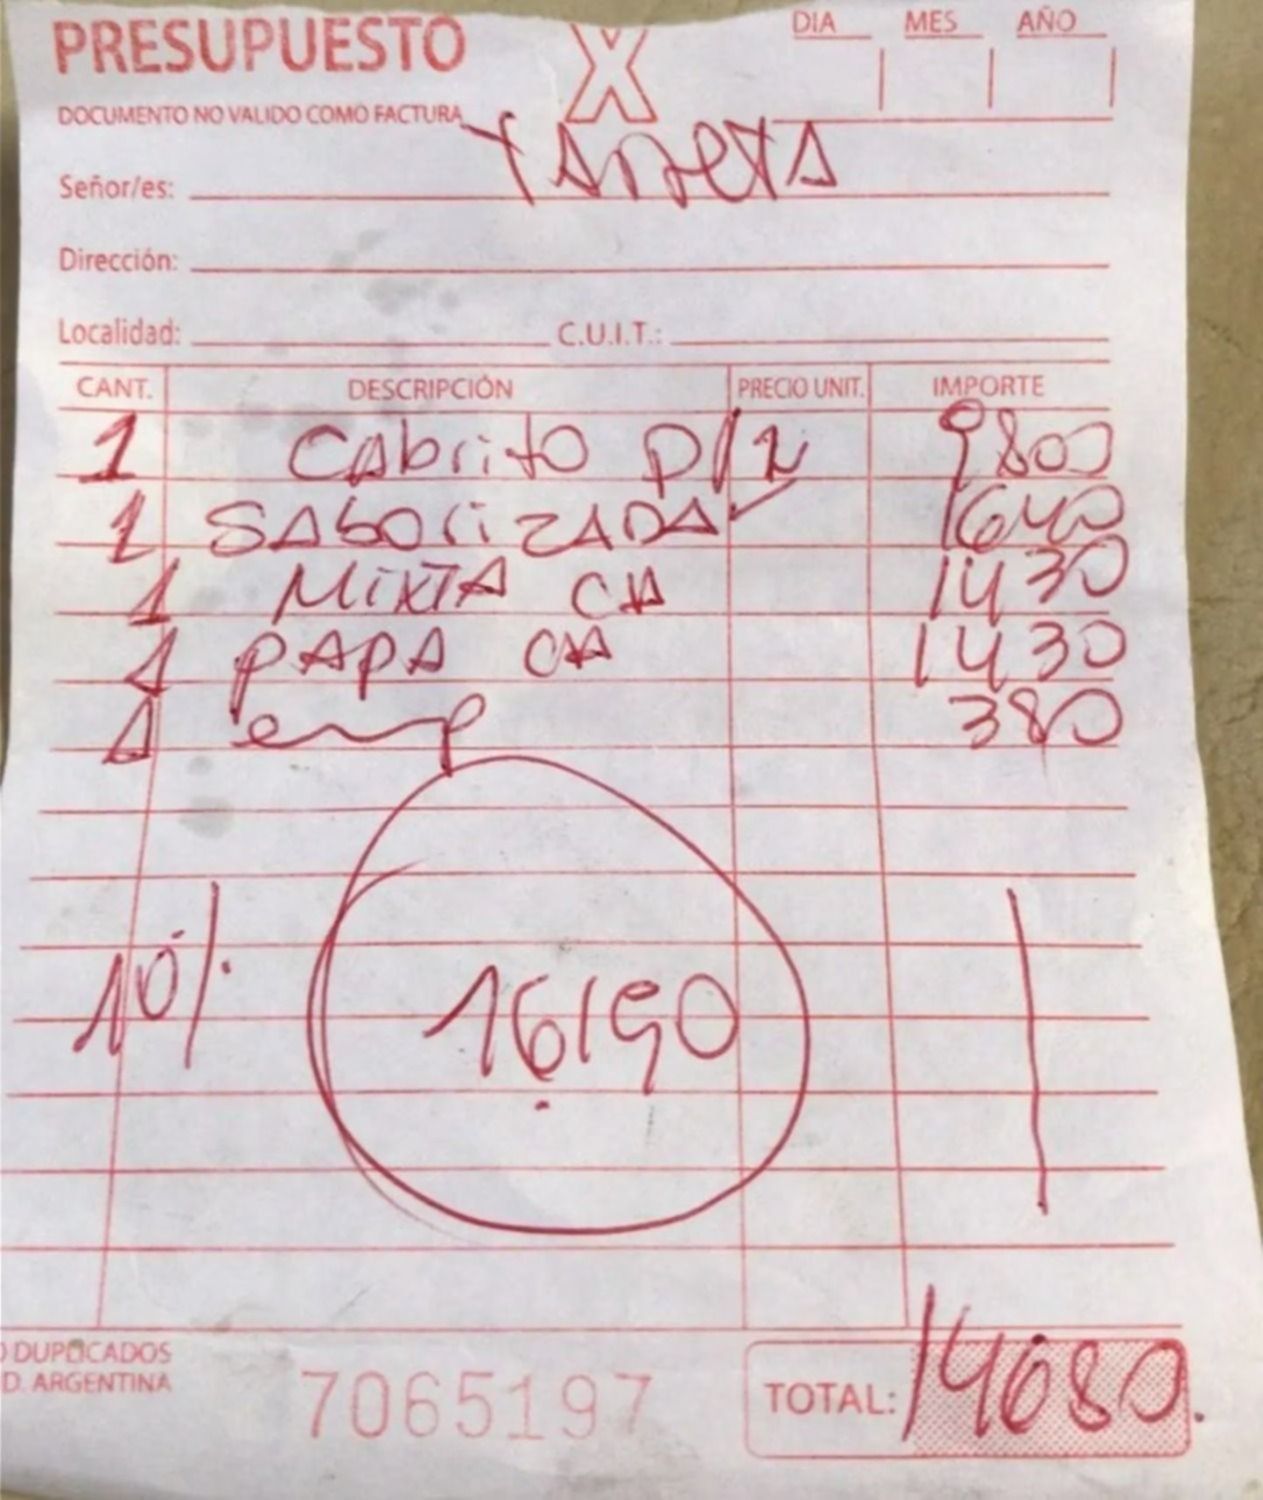 PRESUPUESTO X DIA MES AÑO
DOCUMENTO NO VALIDO COMO FACTURA
Señor/es: TARJETA
Dirección:
Localidad: C.U.I.T.:
CANT. DESCRIPCIÓN PRECIO UNIT. IMPORTE
1 CAbrito p/2 9800
1 SAborizADA 1640
1 MIXTA CH 1430
1 PAPA CH 1430
1 emp 380
10%
16190
O DUPLICADOS
D. ARGENTINA
7065197
TOTAL: 14680.